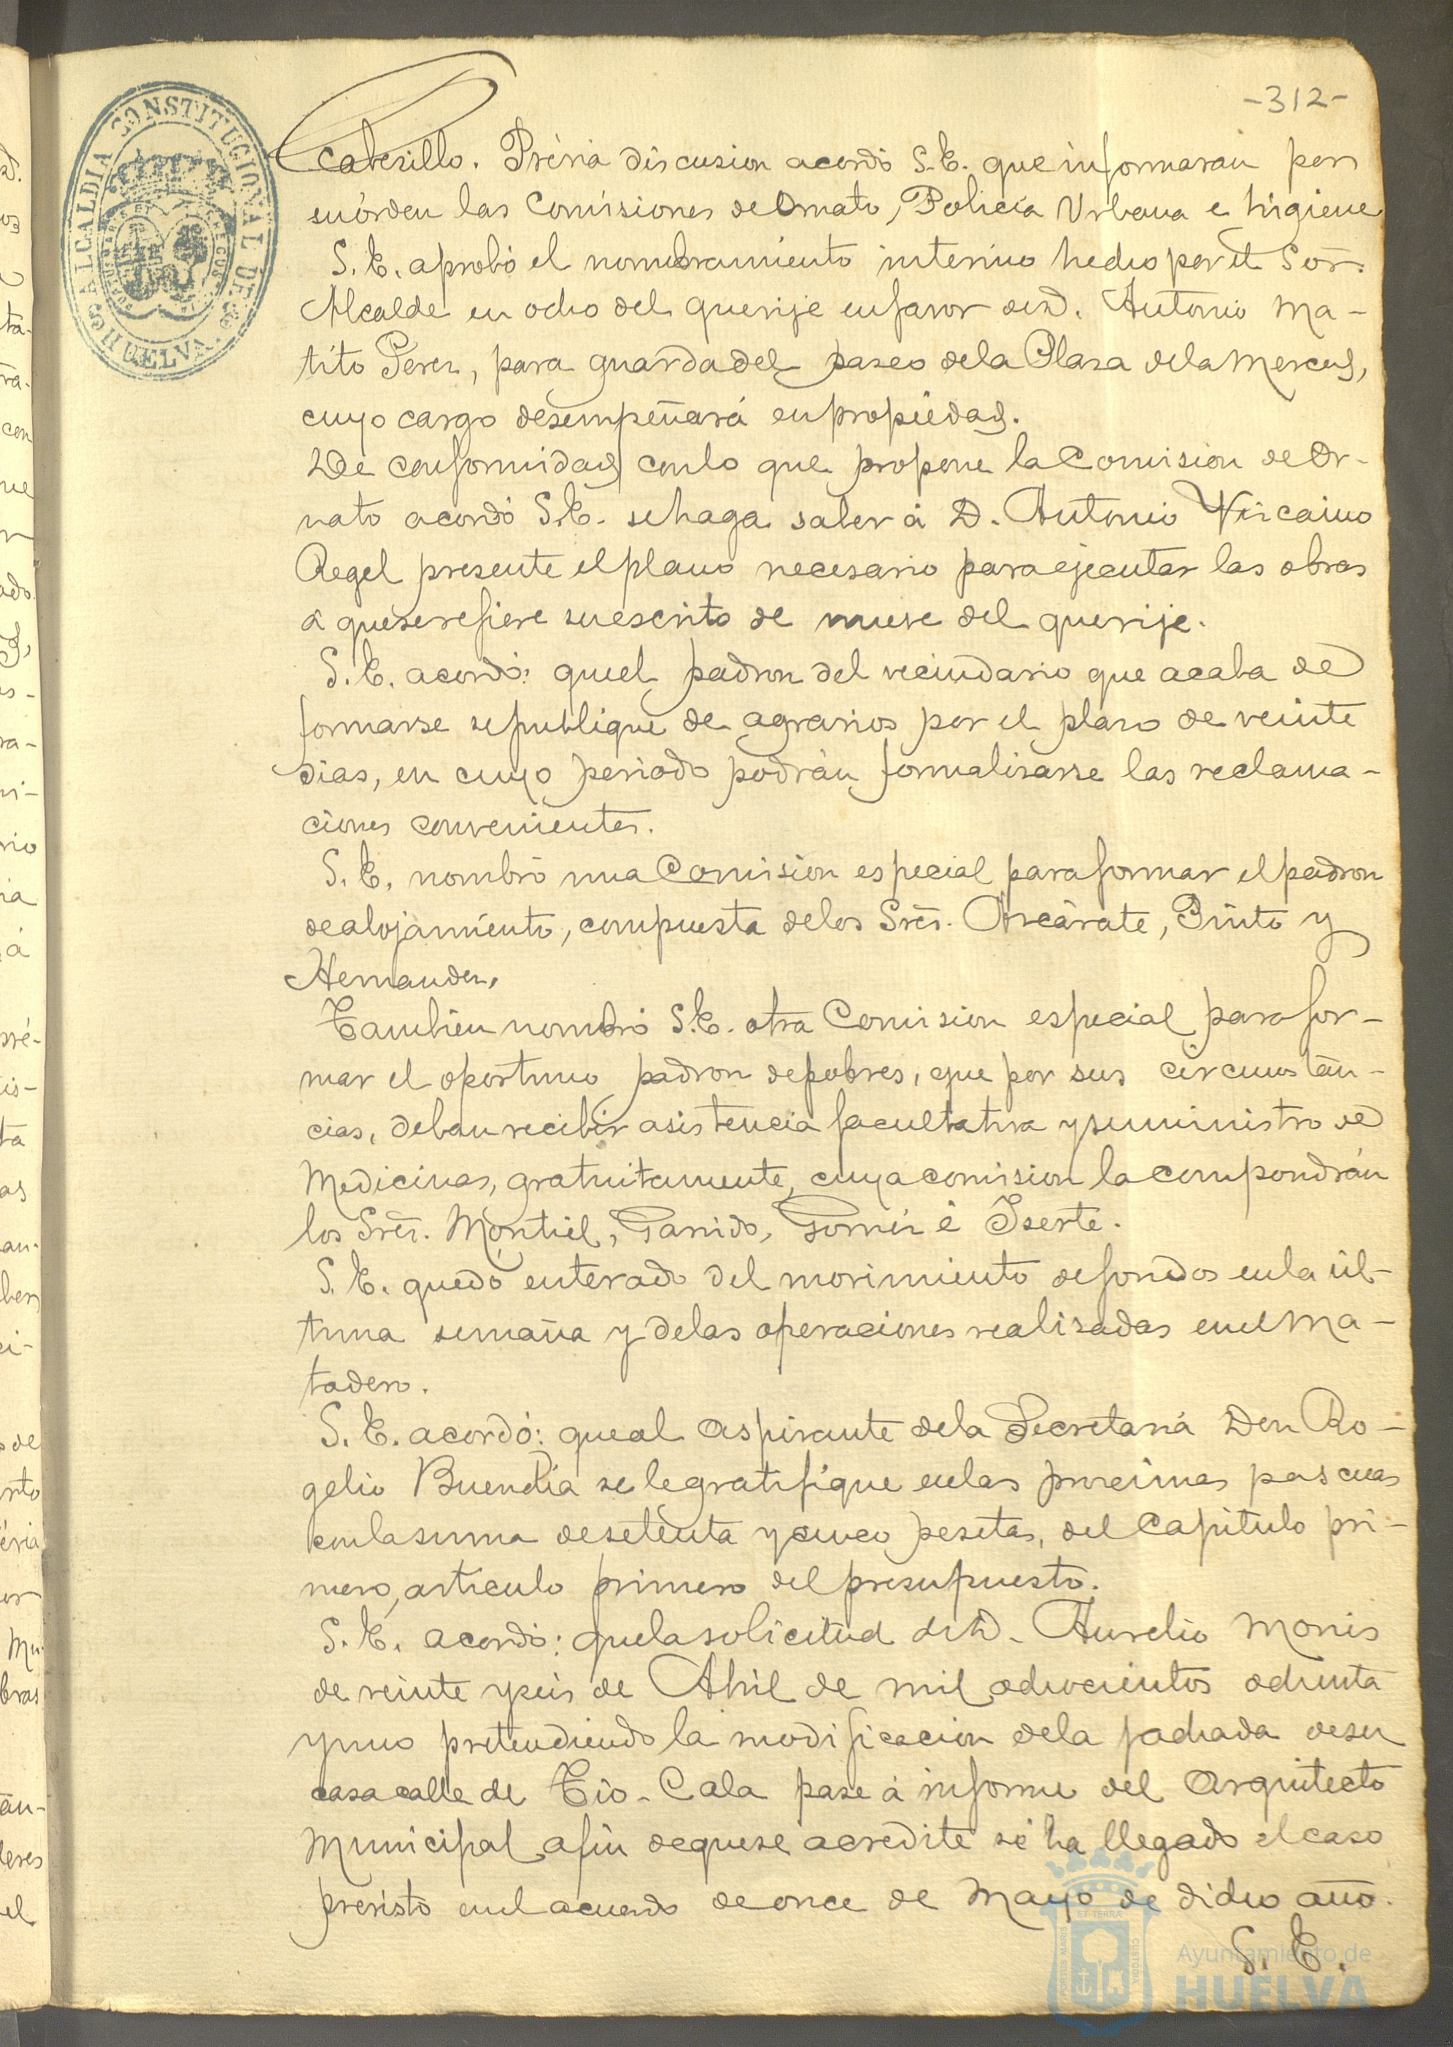 -312-
ALCALDIA CONSTITUCIONAL DE HUELVA
Cabezillo. Prévia discusion acordó S.E. que informaran por
su órden las Comisiones de Ornato, Policía Urbana e higiene
S.E. aprobó el nombramiento interino hecho por el Sor.
Alcalde en ocho del que rije en favor de D. Antonio Ma-
tito Perez, para guarda del paseo de la Plaza de la Merced,
cuyo cargo desempeñará en propiedad.
De conformidad con lo que propone la Comision de Or-
nato acordó S.E. se haga saber á D. Antonio Vizcaino
Regel presente el plano necesario para ejecutar las obras
a que se refiere su escrito de nueve del que rije.
S.E. acordó: que el padron del vecindario que acaba de
formarse se publique de agravios por el plazo de veinte
dias, en cuyo periodo podrán formalizarse las reclama-
ciones convenientes.
S.E. nombró una Comision especial para formar el padron
de alojamiento, compuesta de los Sres. Azcárate, Pinto y
Hernandez.
Tambien nombró S.E. otra Comision especial para for-
mar el oportuno padron de pobres, que por sus circunstan-
cias, deban recibir asistencia facultativa y suministro de
Medicinas, gratuitamente, cuya comision la compondrán
los Sres. Montiel, Garrido, Gomez é Iserte.
S.E. quedó enterado del movimiento de fondos en la úl-
tima semana y de las operaciones realizadas en el Ma-
tadero.
S.E. acordó: que al aspirante de la Secretaria Don Ro-
gelio Buendia se le gratifique en las proximas pascuas
con la suma de setenta y cinco pesetas, del Capitulo pri-
mero, articulo primero del presupuesto.
S.E. acordó: que la solicitud de D. Aurelio Monis
de veinte y seis de Abril de mil ochocientos ochenta
y uno pretendiendo la modificacion de la fachada de su
casa calle de Tio-Cala pase á informe del Arquitecto
Municipal a fin de que se acredite si ha llegado el caso
previsto en el acuerdo de once de Mayo de dicho año.
S.E.
Ayuntamiento de
HUELVA